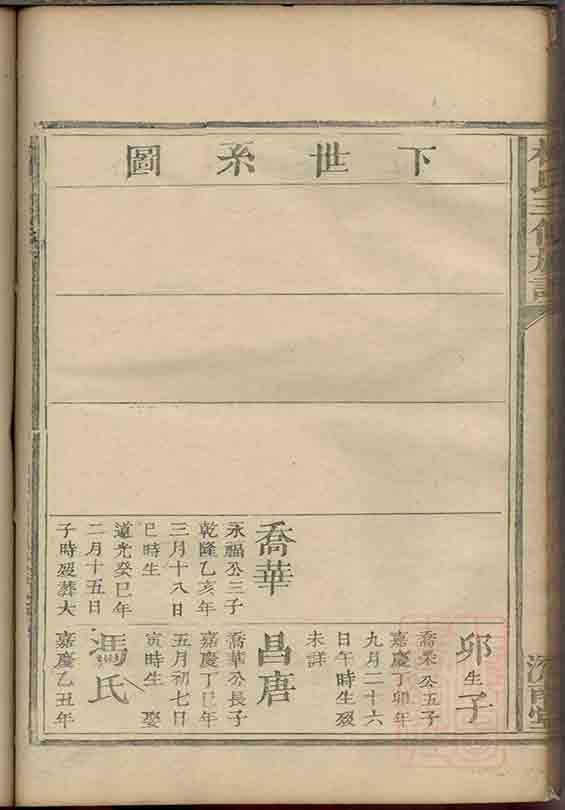 下世系圖
喬華
永福公三子
乾隆乙亥年
三月十八日
巳時生
道光癸巳年
二月十五日
子時歿葬大
卯生子
喬杲公五子
嘉慶丁卯年
九月二十六
日午時生歿
未詳
昌唐
喬華公長子
嘉慶丁巳年
五月初七日
寅時生 娶
馮氏
嘉慶乙丑年
氏三修族譜